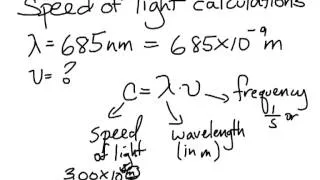 Speed of light calculations
λ = 685nm = 685x10⁻⁹ m
ν = ?
C = λ·ν
frequency
1/s or
Speed of light
wavelength (in m)
3.00x10